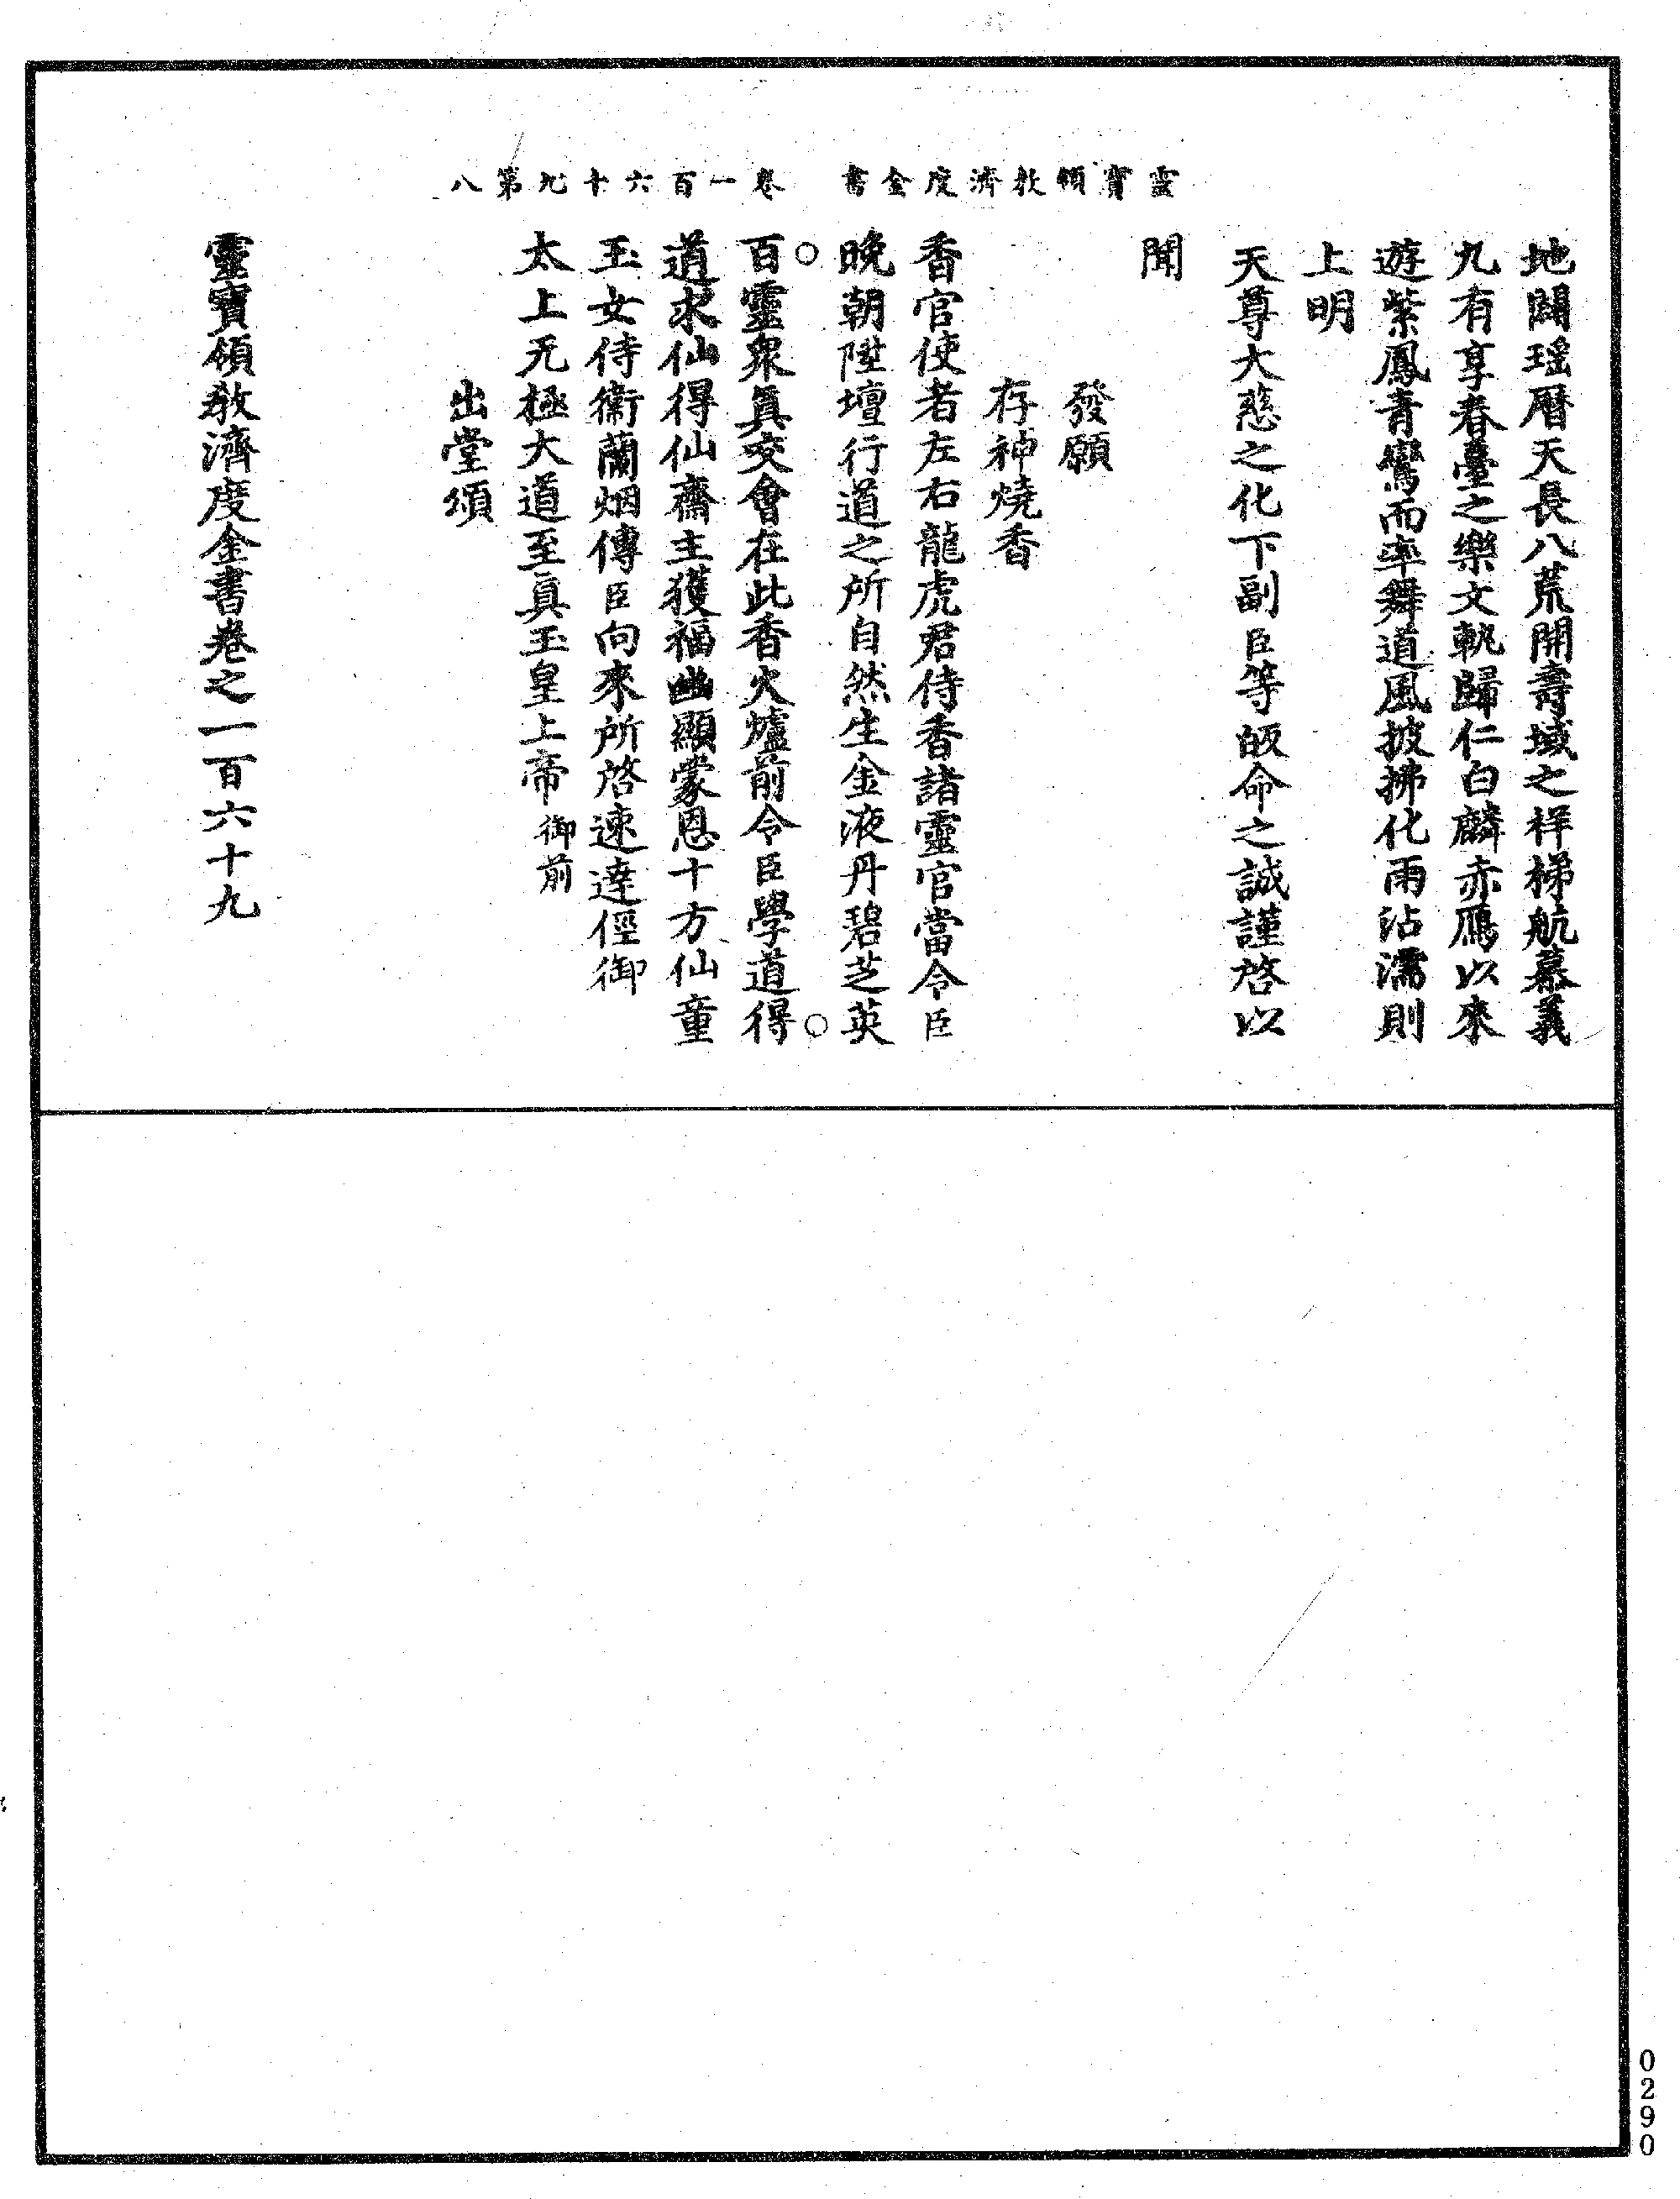 靈寶領教濟度金書　卷一百六十九第八
地闢瑶曆天長八荒開壽域之祥梯航慕義
九有享春臺之樂文軌歸仁白麟赤鴈以來
遊紫鳳青鸞而率舞道風披拂化雨沾濡則
上明
天尊大慈之化下副臣等皈命之誠謹啓以
聞
發願
存神燒香
香官使者左右龍虎君侍香諸靈官當令臣
晚朝陞壇行道之所自然生金液丹碧芝英
○百靈衆真交會在此香火爐前令臣學道得○
道求仙得仙齋主獲福幽顯蒙恩十方仙童
玉女侍衞蘭烟傳臣向來所啓速達徑御
太上无極大道至真玉皇上帝御前
出堂頌
靈寶領教濟度金書卷之一百六十九
0290